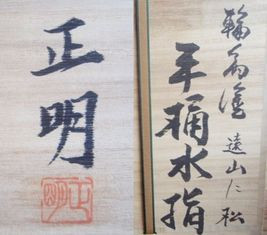 輪島塗 遠山に松
手桶水指
正明
正明